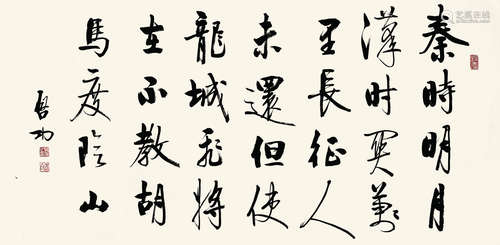 秦時明月
漢时関萬
里長征人
未還但使
龍城飛將
在不教胡
馬度陰山
启功
艺狐在线